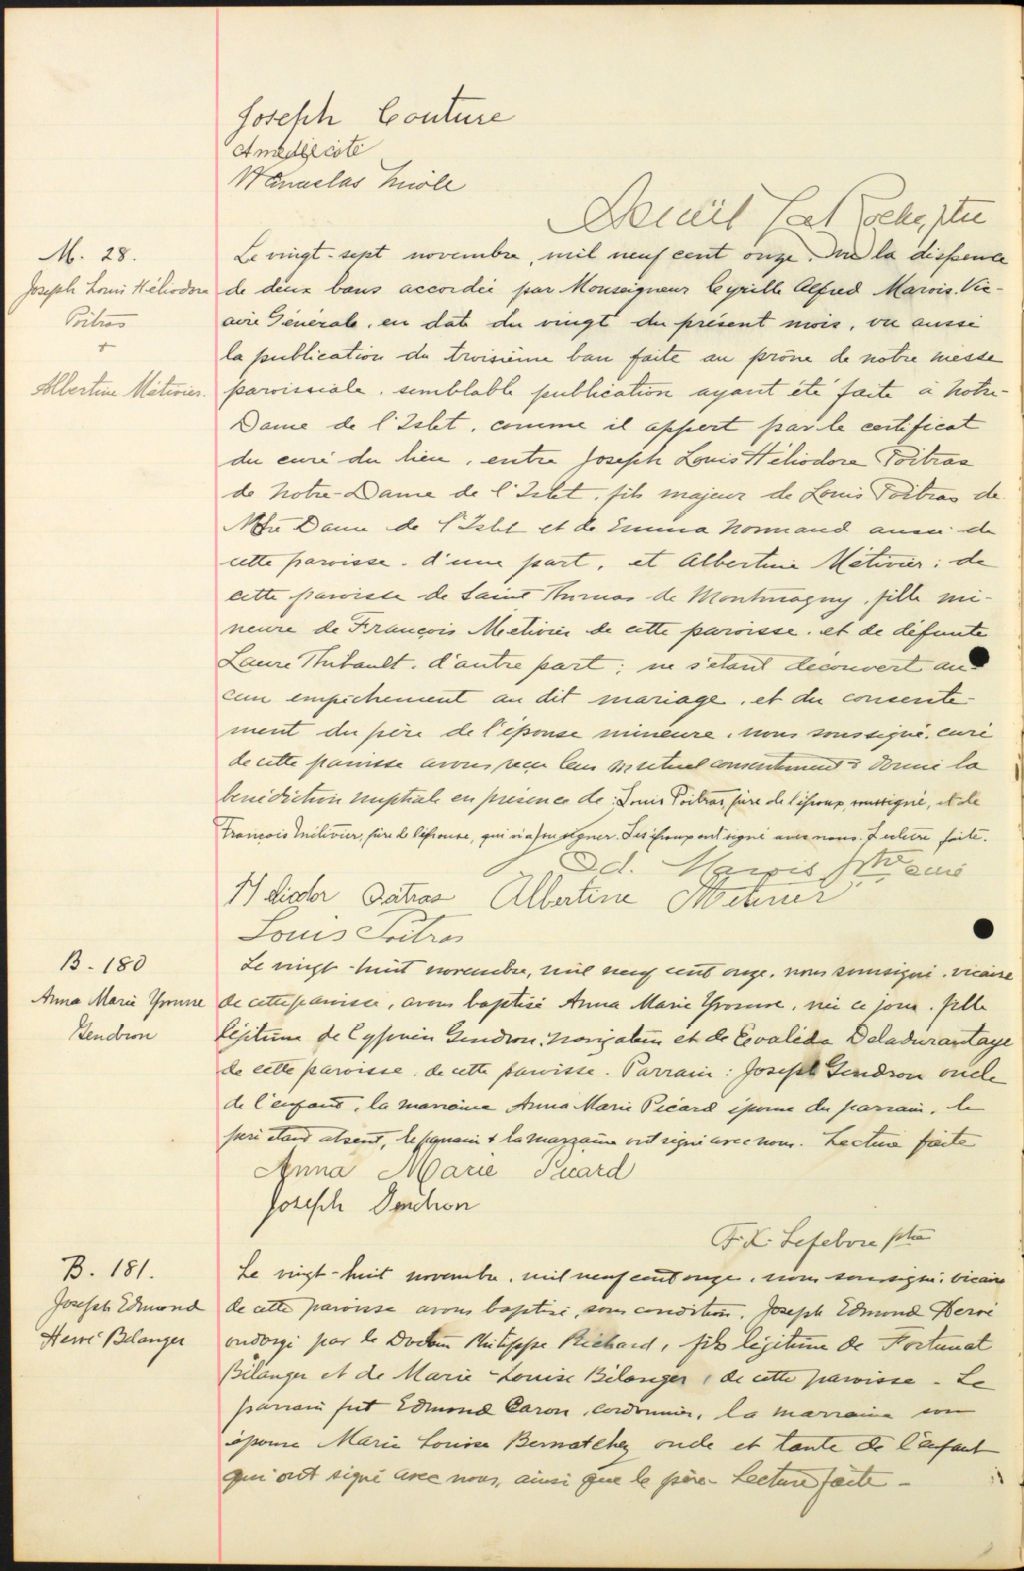 Joseph Couture
Amédée coté
Wenceslas
ptre
M. 28.
Joseph Louis Héliodore
Poitras
+
Albertine Métivier.
Le vingt-sept novembre, mil neuf cent onze. Vu la dispence
de deux bans accordée par Monseigneur Cyrille Alfred Marois. Vic-
aire Générale, en date du vingt du présent mois, vu aussi
la publication du troisième ban faite au prône de notre messe
paroissiale, semblable publication ayant été faite à Notre-
Dame de l'Islet, comme il appert par le certificat
du curé du lieu, entre Joseph Louis Héliodore Poitras
de Notre-Dame de l'Islet, fils majeur de Louis Poitras de
Ntre Dame de l'Islet et de Emma Normand aussi de
cette paroisse. d'une part, et Albertine Métivier; de
cette paroisse de Saint Thomas de Montmagny, fille mi-
neure de François Metivier de cette paroisse. et de défunte
Laure Thibault. d'autre part; ne s'étant découvert au-
cun empêchement au dit mariage, et du consente-
ment du père de l'épouse mineure, nous soussigné, curé
de cette paroisse avons reçu leur mutuel consentement & donné la
bénédiction nuptiale en présence de: Louis Poitras, père de l'époux, soussigné, et de
François Métivier, père de l'épouse, qui n'a su signer. Les époux ont signé avec nous. Lecture faite.
Od. Marois Ptre curé
Héliodor Poitras Albertine Metivier
Louis Poitras
B-180
Anna Marie Yvonne
Gendron
Le vingt-huit novembre, mil neuf cent onze, nous soussigné, vicaire
de cette paroisse, avons baptisé Anna Marie Yvonne, née ce jour, fille
légitime de Cyprien Gendron, navigateur et de Evaléda Deladurantaye
de cette paroisse. de cette paroisse. Parrain: Joseph Gendron oncle
de l'enfant, la marraine Anna Marie Picard épouse du parrain, le
père étant absent, le parrain & la marraine ont signé avec nous. Lecture faite
Anna Marie Picard
Joseph Gendron
F. X. Lefebvre ptre
B. 181.
Joseph Edmond
Hervé Bélanger
Le vingt-huit novembre, mil neuf cent onze, nous soussigné, vicaire
de cette paroisse avons baptisé, sous condition, Joseph Edmond Hervé
ondoyé par le Docteur Philippe Richard, fils légitime de Fortunat
Bélanger et de Marie-Louise Bélanger, de cette paroisse - Le
parrain fut Edmond Caron, cordonnier, la marraine son
épouse Marie Louise Bernatchez oncle et tante de l'enfant
qui ont signé avec nous, ainsi que le père - Lecture faite -